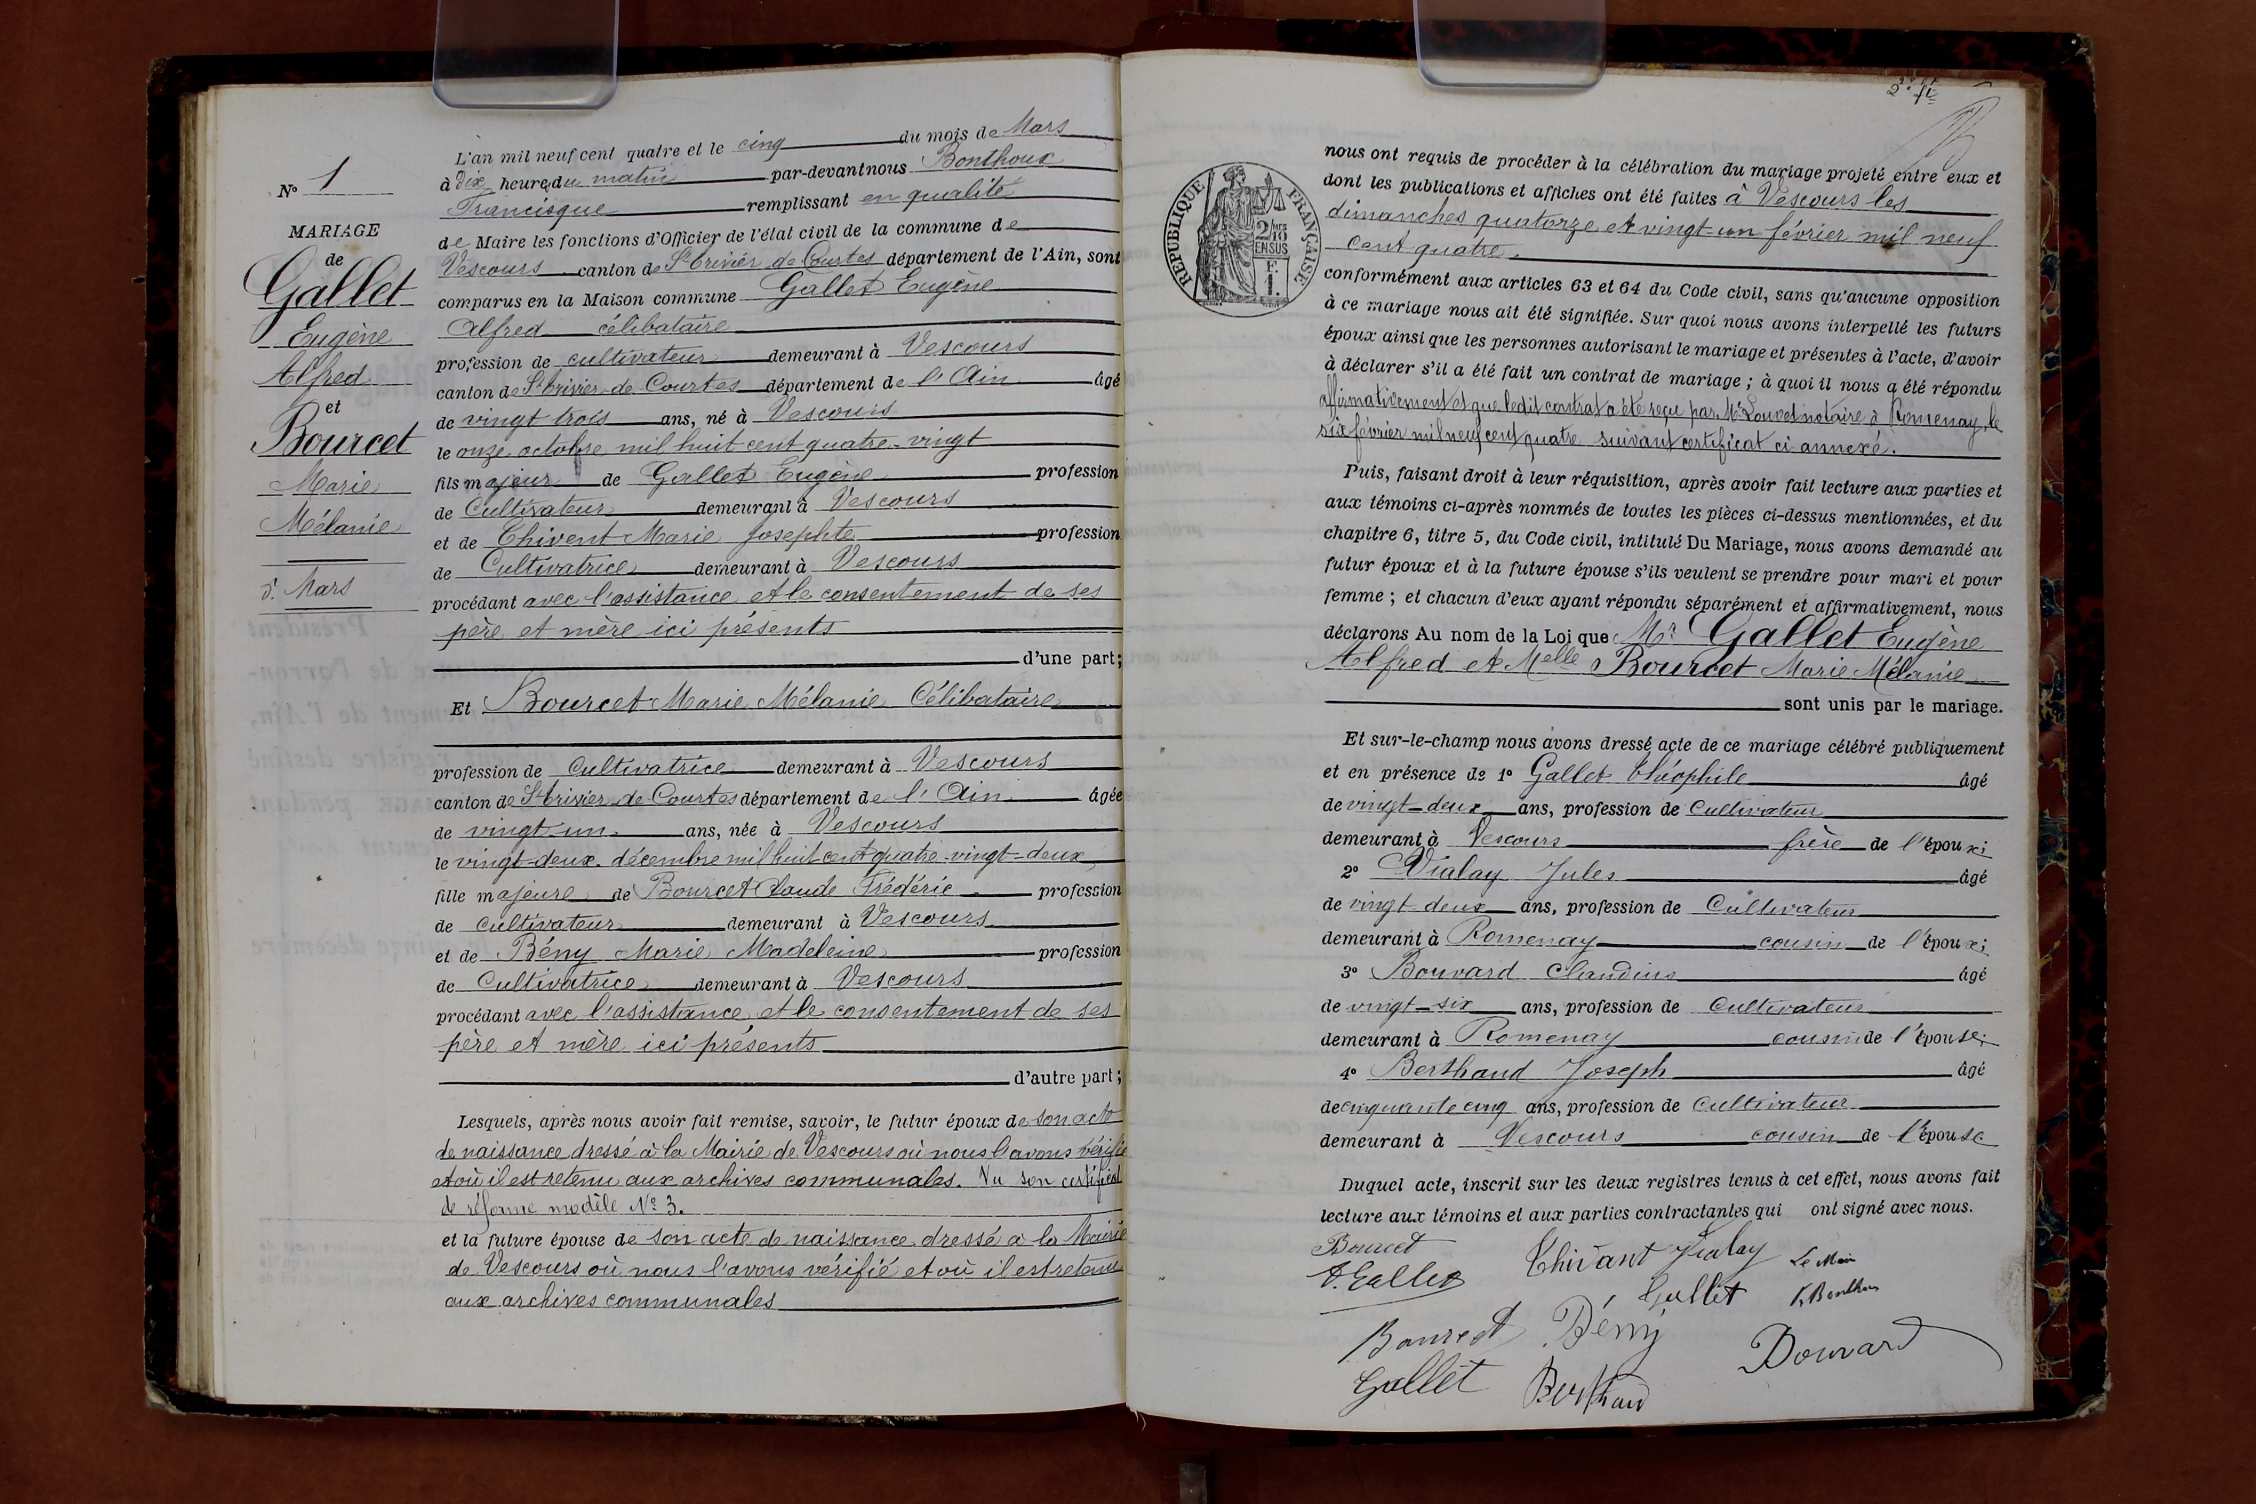 N° 1
MARIAGE
de
Gallet
Eugène
Alfred
et
Bourcet
Marie
Mélanie
5 Mars
L'an mil neuf cent quatre et le cinq du mois de Mars
à dix heures du matin par-devant nous Bonthoux
Francisque remplissant en qualité
de Maire les fonctions d'Officier de l'état civil de la commune de
Vescours canton de St Trivier de Courtes département de l'Ain, sont
comparus en la Maison commune Gallet Eugène
Alfred célibataire
profession de cultivateur demeurant à Vescours
canton de St Trivier de Courtes département de l'Ain âgé
de vingt trois ans, né à Vescours
le onze octobre mil huit cent quatre-vingt
fils majeur de Gallet Eugène profession
de Cultivateur demeurant à Vescours
et de Chivent Marie Josephte profession
de Cultivatrice demeurant à Vescours
procédant avec l'assistance et le consentement de ses
père et mère ici présents
d'une part;
Et Bourcet Marie Mélanie Célibataire
profession de Cultivatrice demeurant à Vescours
canton de St Trivier de Courtes département de l'Ain âgée
de vingt-un ans, née à Vescours
le vingt-deux décembre mil huit cent quatre-vingt-deux
fille majeure de Bourcet Claude Frédéric profession
de cultivateur demeurant à Vescours
et de Bény Marie Madeleine profession
de Cultivatrice demeurant à Vescours
procédant avec l'assistance et le consentement de ses
père et mère ici présents
d'autre part;
Lesquels, après nous avoir fait remise, savoir, le futur époux de son acte
de naissance dressé à la Mairie de Vescours où nous l'avons vérifié
et où il est retenu aux archives communales. Vu son certificat
de réforme modèle N° 3.
et la future épouse de son acte de naissance dressé à la Mairie
de Vescours où nous l'avons vérifié et où il est retenu
aux archives communales
REPUBLIQUE FRANÇAISE
nous ont requis de procéder à la célébration du mariage projeté entre eux et
dont les publications et affiches ont été faites à Vescours les
dimanches quatorze et vingt-un février mil neuf
cent quatre.
conformément aux articles 63 et 64 du Code civil, sans qu'aucune opposition
à ce mariage nous ait été signifiée. Sur quoi nous avons interpellé les futurs
époux ainsi que les personnes autorisant le mariage et présentes à l'acte, d'avoir
à déclarer s'il a été fait un contrat de mariage ; à quoi il nous a été répondu
affirmativement et que ledit contrat a été reçu par Me Louvet notaire à Romenay, le
six février mil neuf cent quatre suivant certificat ci annexé.
Puis, faisant droit à leur réquisition, après avoir fait lecture aux parties et
aux témoins ci-après nommés de toutes les pièces ci-dessus mentionnées, et du
chapitre 6, titre 5, du Code civil, intitulé Du Mariage, nous avons demandé au
futur époux et à la future épouse s'ils veulent se prendre pour mari et pour
femme ; et chacun d'eux ayant répondu séparément et affirmativement, nous
déclarons Au nom de la Loi que Mr Gallet Eugène
Alfred et Melle Bourcet Marie Mélanie
sont unis par le mariage.
Et sur-le-champ nous avons dressé acte de ce mariage célébré publiquement
et en présence de 1° Gallet Théophile âgé
de vingt-deux ans, profession de Cultivateur
demeurant à Vescours frère de l'époux;
2° Vialay Jules âgé
de vingt deux ans, profession de Cultivateur
demeurant à Romenay cousin de l'époux;
3° Bouvard Claudius âgé
de vingt-six ans, profession de Cultivateur
demeurant à Romenay cousin de l'épouse;
4° Berthaud Joseph âgé
de cinquante cinq ans, profession de Cultivateur
demeurant à Vescours cousin de l'épouse
Duquel acte, inscrit sur les deux registres tenus à cet effet, nous avons fait
lecture aux témoins et aux parties contractantes qui ont signé avec nous.
Bourcet Chivant Vialay Le Maire
A. Gallet Gallet F. Bonthoux
Bourcet Bény Bouvard
Gallet Berthaud